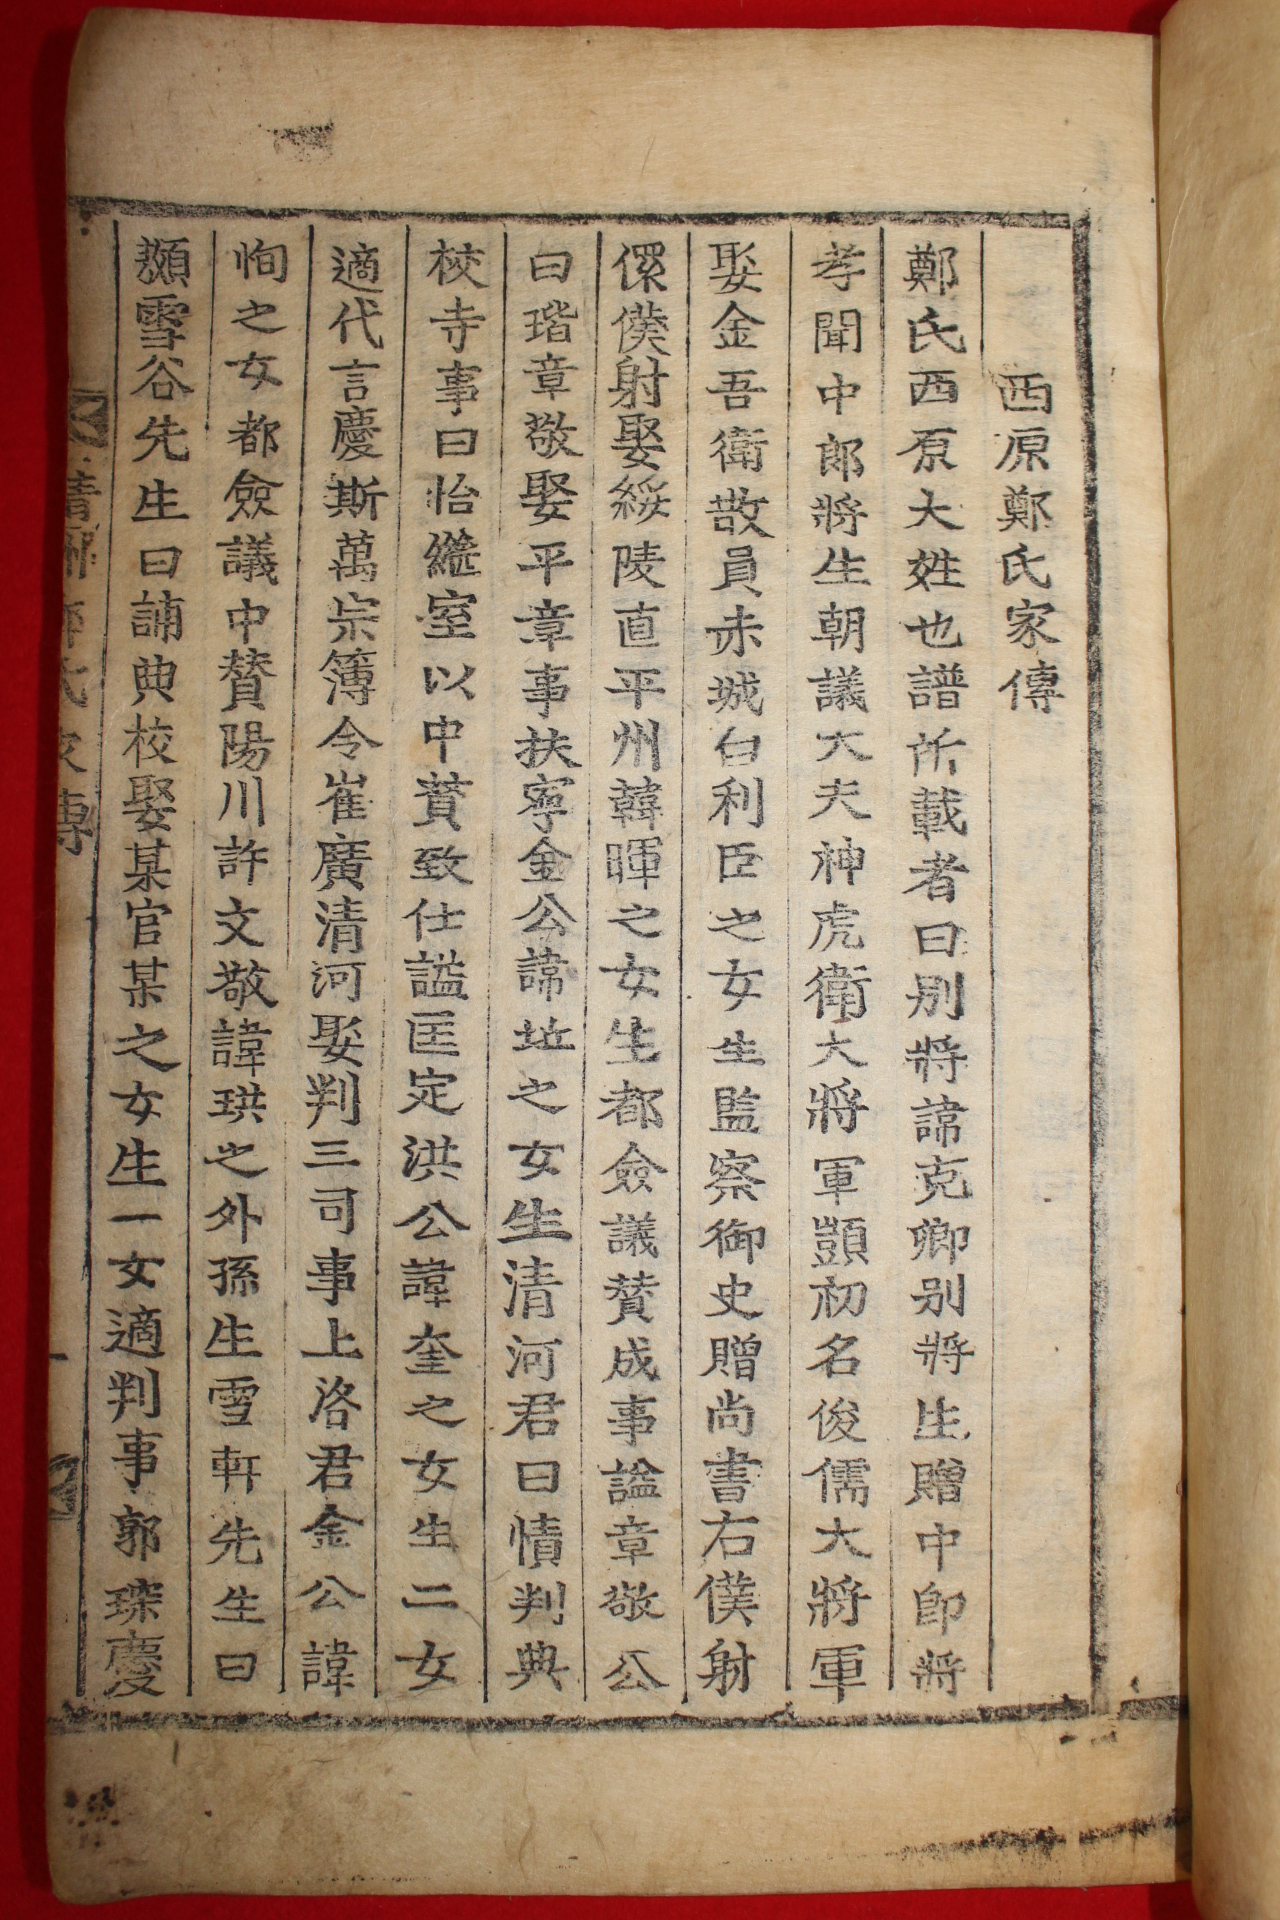 西原鄭氏家傳
鄭氏西原大姓也譜所載者曰別將諱克卿別將生贈中郎將
孝聞中郎將生朝議大夫神虎衛大將軍顗初名俊儒大將軍
娶金吾衛散員赤城白利臣之女生監察御史贈尚書右僕射
僕射娶綏陵直平州韓暉之女生都僉議賛成事謚章敬公
曰瑎章敬娶平章事扶寧金公諱坵之女生清河君曰㥽判典
校寺事曰怡繼室以中賛致仕謚匡定洪公諱奎之女生二女
適代言慶斯萬宗簿令崔廣清河娶判三司事上洛君金公諱
恂之女都僉議中賛陽川許文敬諱珙之外孫生雪軒先生曰
䫨雪谷先生曰誧典校娶某官某之女生一女適判事郭琛慶
清州鄭氏家傳
一